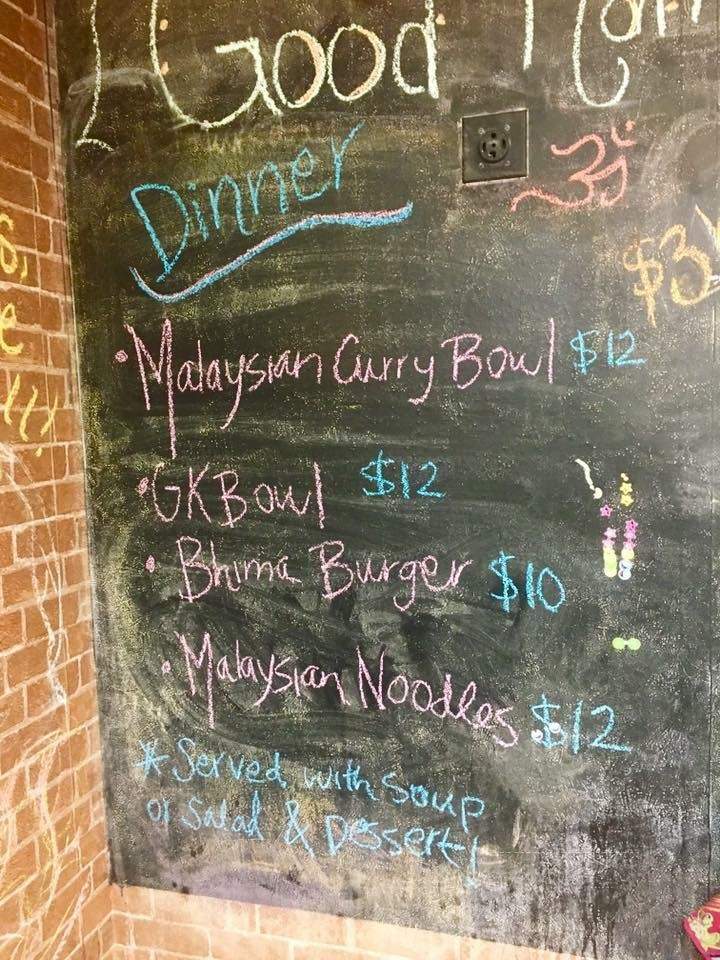 Good
Dinner
ॐ
$3
• Malaysian Curry Bowl $12
• GK Bowl $12
• Bhima Burger $10
• Malaysian Noodles $12
* Served with soup
or Salad & Dessert!